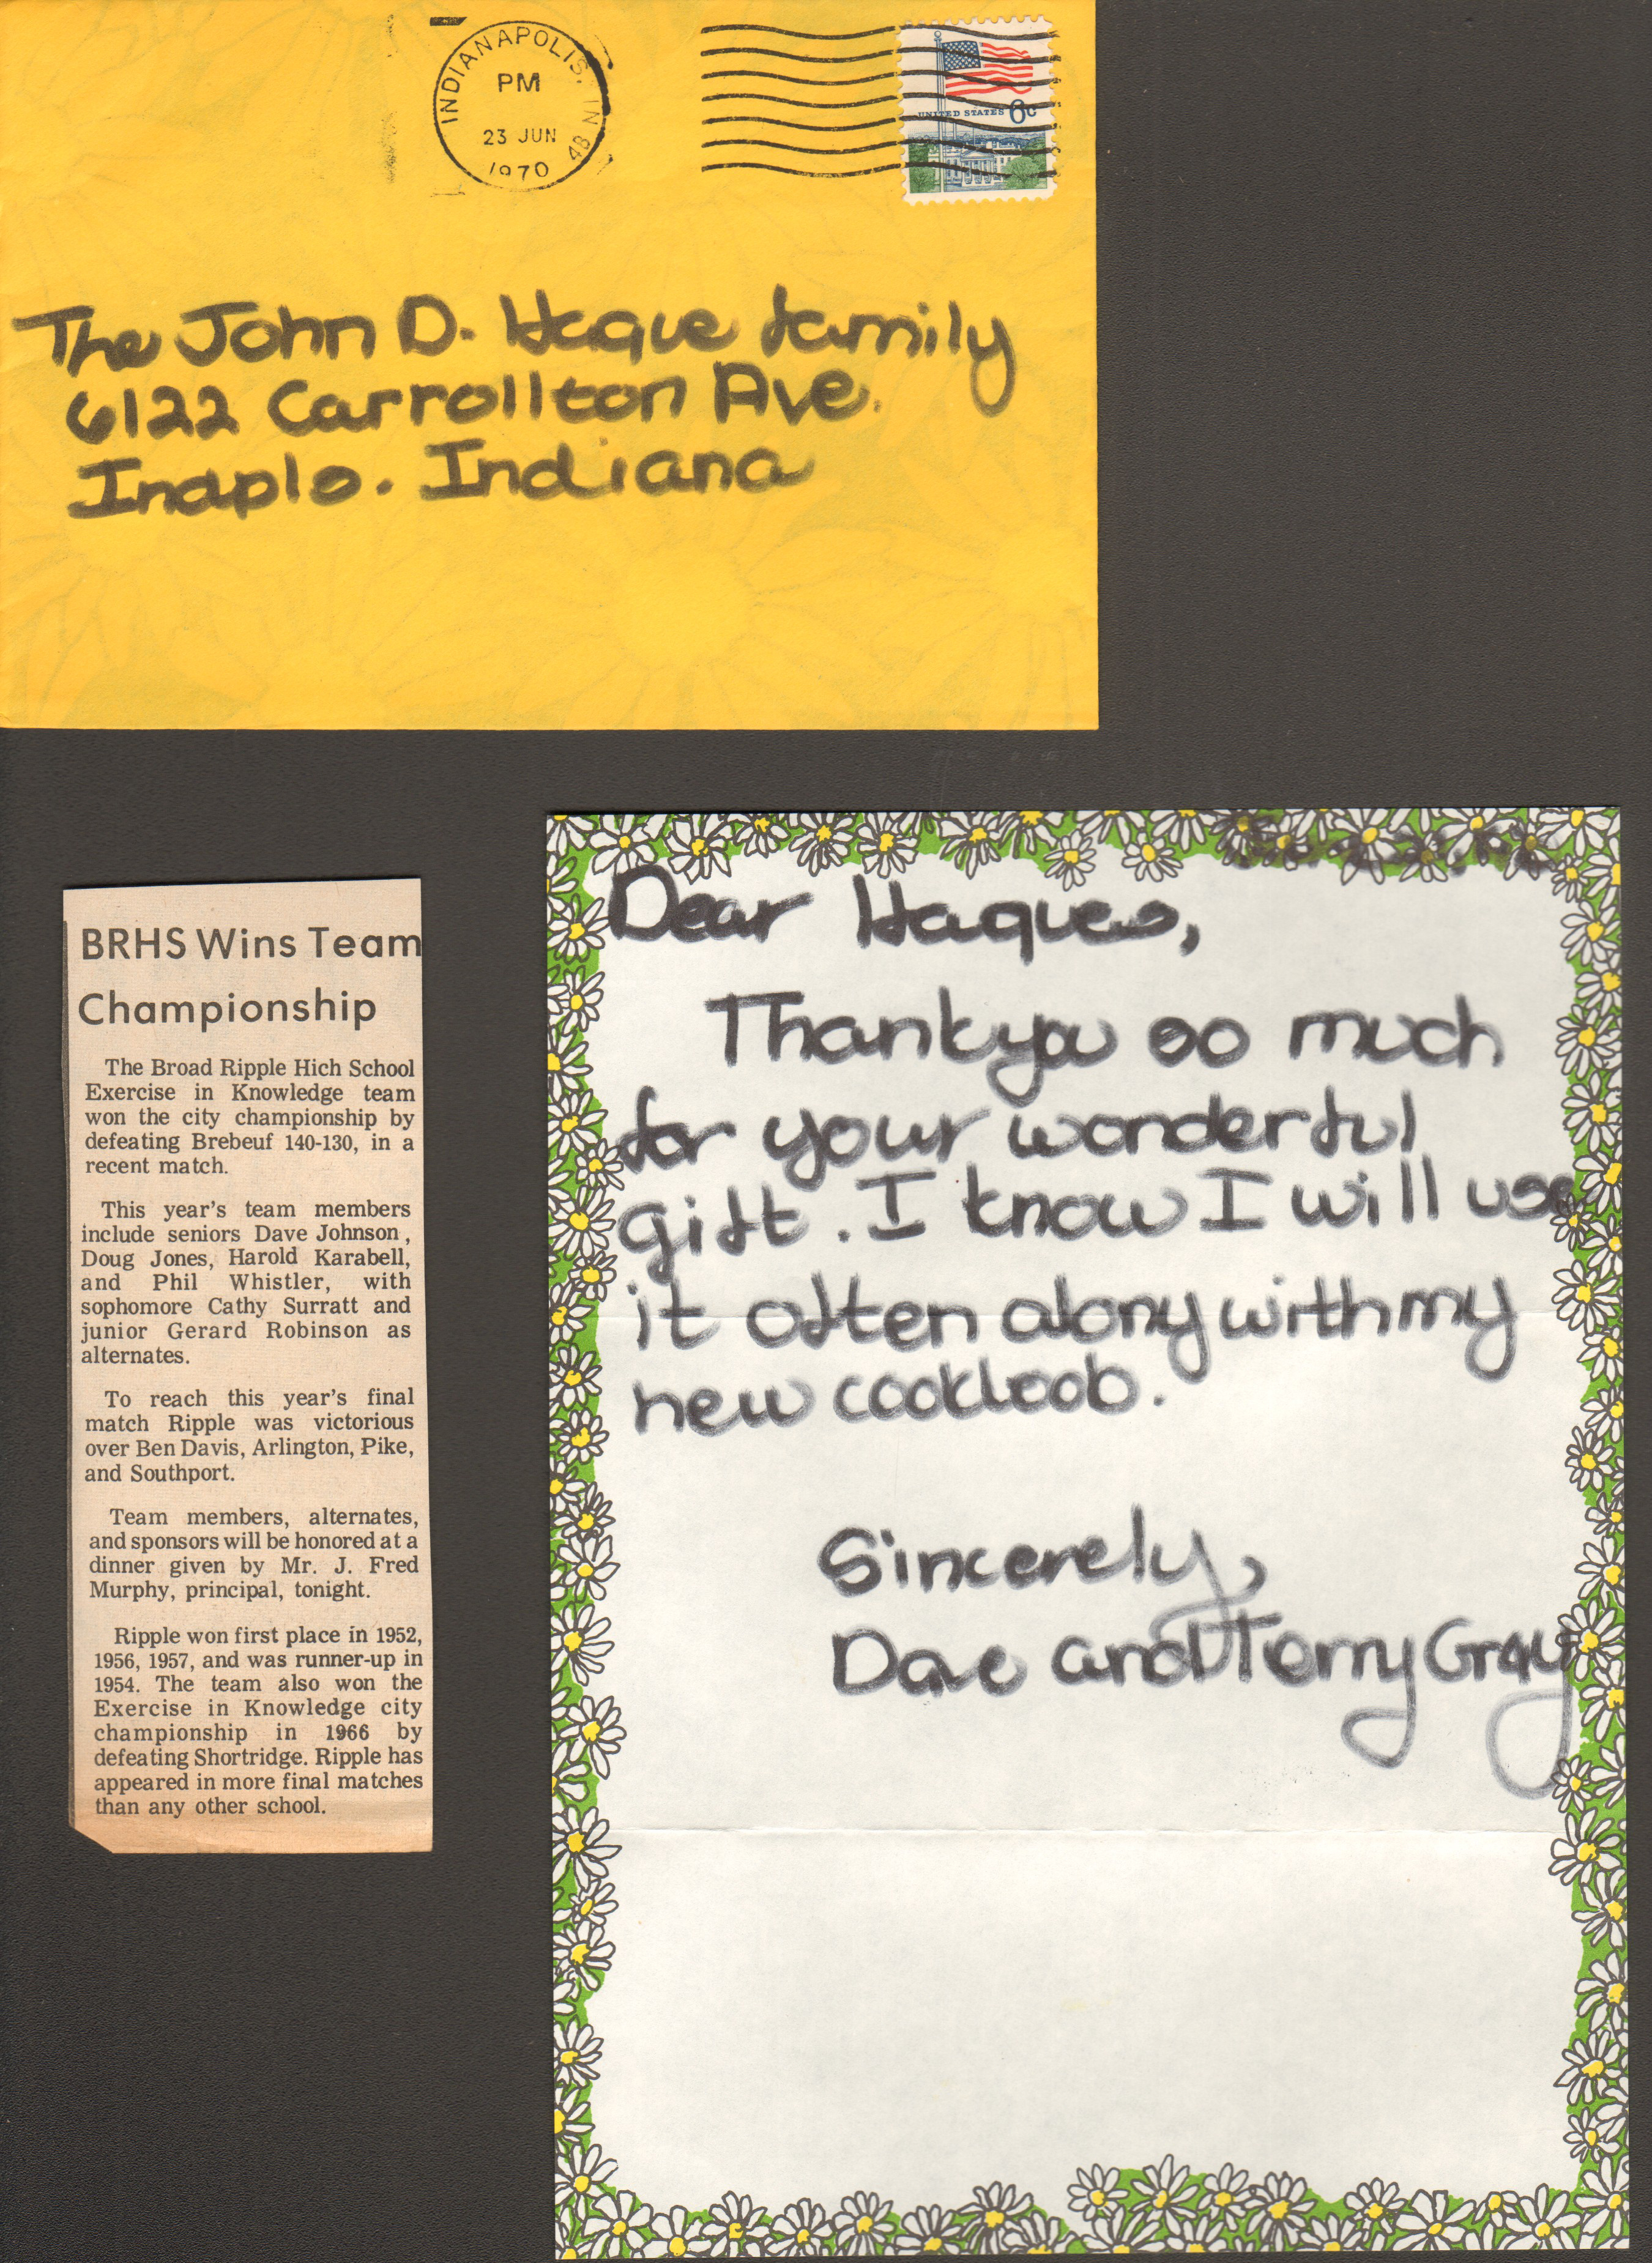 INDIANAPOLIS, IN 48
PM
23 JUN
1970
UNITED STATES 6c
The John D. Hague family
6122 Carrollton Ave.
Indpls. Indiana
BRHS Wins Team
Championship
The Broad Ripple Hich School
Exercise in Knowledge team
won the city championship by
defeating Brebeuf 140-130, in a
recent match.
This year's team members
include seniors Dave Johnson,
Doug Jones, Harold Karabell,
and Phil Whistler, with
sophomore Cathy Surratt and
junior Gerard Robinson as
alternates.
To reach this year's final
match Ripple was victorious
over Ben Davis, Arlington, Pike,
and Southport.
Team members, alternates,
and sponsors will be honored at a
dinner given by Mr. J. Fred
Murphy, principal, tonight.
Ripple won first place in 1952,
1956, 1957, and was runner-up in
1954. The team also won the
Exercise in Knowledge city
championship in 1966 by
defeating Shortridge. Ripple has
appeared in more final matches
than any other school.
Dear Hagues,
Thank you so much
for your wonderful
gift. I know I will use
it often along with my
new cookbook.
Sincerely,
Dave and Terry Gray